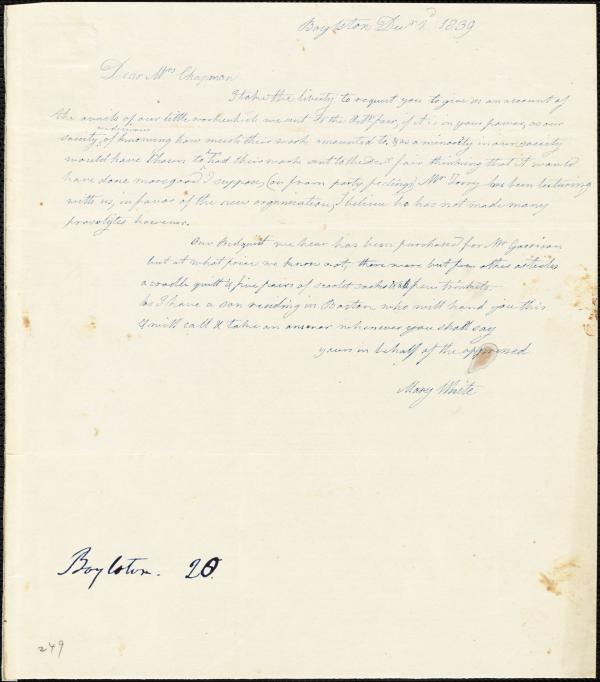 Boylston Dec 2d 1839
Dear Mrs Chapman
I take the liberty to request you to give us an account of
the avails of our little work which we sent to the Oct. fair, if it is in your power, as our
society, are desirous of knowing how much their work amounted to, as a minority in our society
would have chosen to had their work sent to the Dec fair thinking that it would
have done more good I suppose, (or from party feelings) Mr Torry has been lecturing
with us, in favor of the new organization, I believe he has not made many
proselytes however.
Our Bedquilt we hear has been purchased for Mr Garrison
but at what price we know not, there were but few other articles
a cradle quilt & five pairs of scarlet socks & a few trinkets.
I have a son residing in Boston who will hand you this
& will call & take an answer whenever you shall say
yours in behalf of the oppressed
Mary White
Boylston. 20.
249